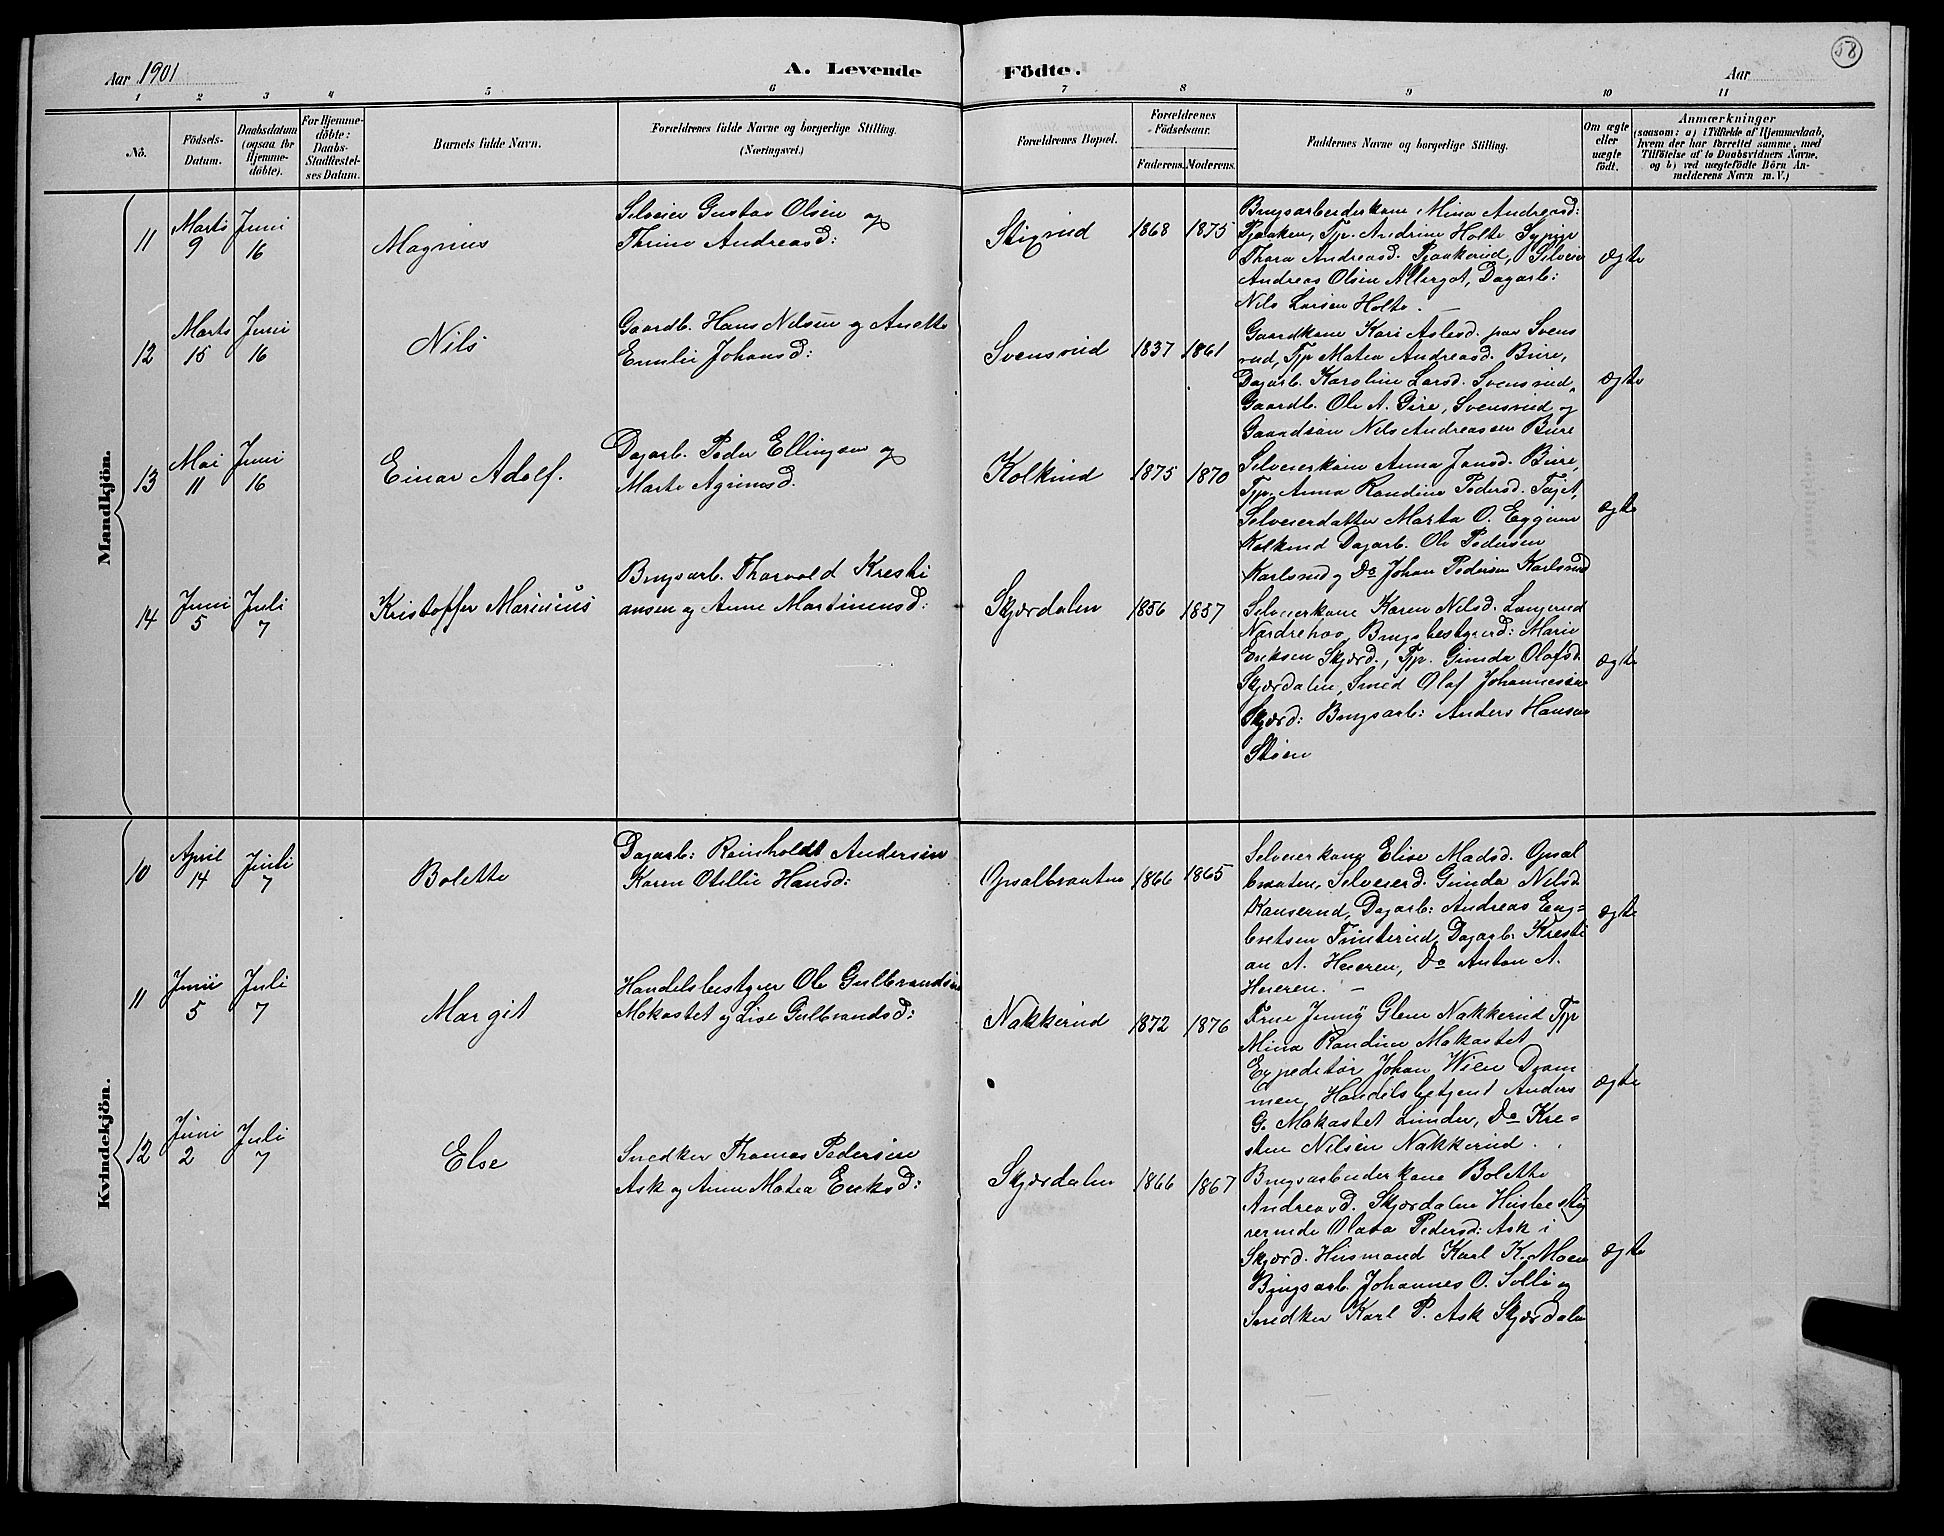 58
Aar 1901
A. Levende Födte.
Aar
1 2 3 4 5 6 7 8 9 10 11
No.
Födsels-
Datum.
Daabsdatum
(ogsaa for
Hjemme-
døbte).
For Hjemme-
døbte:
Daabs-
Stadfæstel-
ses Datum.
Barnets fulde Navn.
Forældrenes fulde Navne og borgerlige Stilling.
(Næringsvei.)
Forældrenes Bopæl.
Forældrenes
Födselsaar.
Faderens. Moderens.
Faddernes Navne og borgerlige Stilling.
Om ægte
eller
uægte
født.
Anmærkninger
(saasom: a) i Tilfælde af Hjemmedaab,
hvem der har forrettet samme, med
Tilföielse af to Daabsvidners Navne,
og b) ved uægtefödte Börn An-
melderens Navn m. V.)
Mandkjön.
11
Marts
9
Juni
16
Magnus
Selveier Gustav Olsen og
Thrine Andreasd:
Stigrud
1868 1875
Brugsarbeiderkone Mina Andreasd:
Tjp. Andrine Holte Sypige
Thora Andreasd. Selveier
Andreas Olsen Dagarb:
Nils Larsen Holte. —
ægte
12
Marts
15
Juni
16
Nils
Gaardb. Hans Nilsen og Anette
Emilie Johansd:
Svensrud
1837 1861
Gaardkone Kari Aslesd. paa Svens
rud, Tjp Matea Andreasd. Bure,
Dagarb. Karoline Larsd. Svensrud,
Gaardb. Ole A. Svensrud og
Gaardsøn Nils Andreassen Bure
ægte
13
Mai
11
Juni
16
Einar Adolf.
Dagarb. Peder Ellingsen og
Marte
Kolkind
1875 1870
Selveierkone Anna Jansd. Bure,
Tjp. Anna Randine Pedersd.
Selveierdatter Marta O.
Kolkind Dagarb. Ole Pedersen
Karlsrud og Do Johan Pedersen Karlsrud
ægte
14
Juni
5
Juli
7
Kristoffer Marinius
Brugsarb. Thorvald Kristi
ansen og Anne Martinusd:
Skjærdalen
1856 1857
Selveierkone Karen Nilsd.
Brugsbestyrerd: Marie
Eriksen Skjærd., Tjp. Gunda Olafsd.
Skjærdalen, Smed Olaf Johannesen
Skjærd: Brugsarb: Anders Hansen
Støen
ægte
Kvindekjön.
10
April
14
Juli
7
Bolette
Dagarb: Reinholdt Andersen
Karen Otillie Hansd:
Opsalbraaten
1866 1865
Selveierkone Elise Madsd. Opsal
braaten, Selveierd. Gunda Nilsd
Dagarb: Andreas Eng-
bretsen Dagarb. Kristi
an A. Hueren, Do Anton A.
Hueren. —
ægte
11
Juni
5
Juli
7
Margit
Handelsbestyrer Ole Gulbrandsen
Mokastet og Lise Gulbrandsd:
Nakkerud
1872 1876
Frue Jenny Glenne Nakkerud Tjp
Mina Randine Mokastet
Expeditør Johan Wien Dram
men, Handelsbetjent Anders
G. Mokastet Lunder, Do Kre-
sten Nilsen Nakkerud.
ægte
12
Juni
2
Juli
7
Else
Snedker Thomas Pedersen
Ask og Anne Matea Eriksd:
Skjærdalen
1866 1867
Brugsarbeiderkone Bolette
Andreasd. Skjærdalen Husbesty
rerinde Olava Pedersd: Ask i
Skjærd. Husmand Karl K. Moen
Brugsarb. Johannes O. Solli og
Snedker Karl P. Ask Skjærdalen
ægte